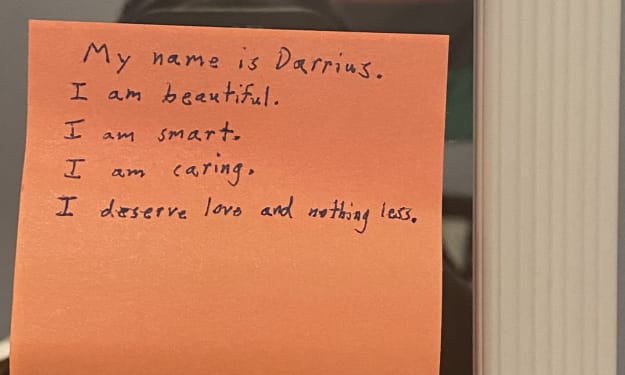 My name is Darrius.
I am beautiful.
I am smart.
I am caring.
I deserve love and nothing less.